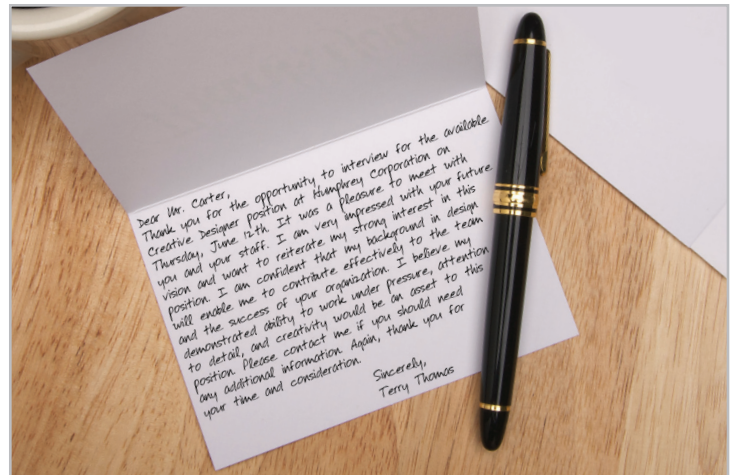 Dear Mr. Carter,
Thank you for the opportunity to interview for the available
Creative Designer position at Humphrey Corporation on
Thursday, June 12th. It was a pleasure to meet with
you and your staff. I am very impressed with your future
vision and want to reiterate my strong interest in this
position. I am confident that my background in design
will enable me to contribute effectively to the team
and the success of your organization. I believe my
demonstrated ability to work under pressure, attention
to detail, and creativity would be an asset to this
position. Please contact me if you should need
any additional information. Again, thank you for
your time and consideration.
Sincerely,
Terry Thomas